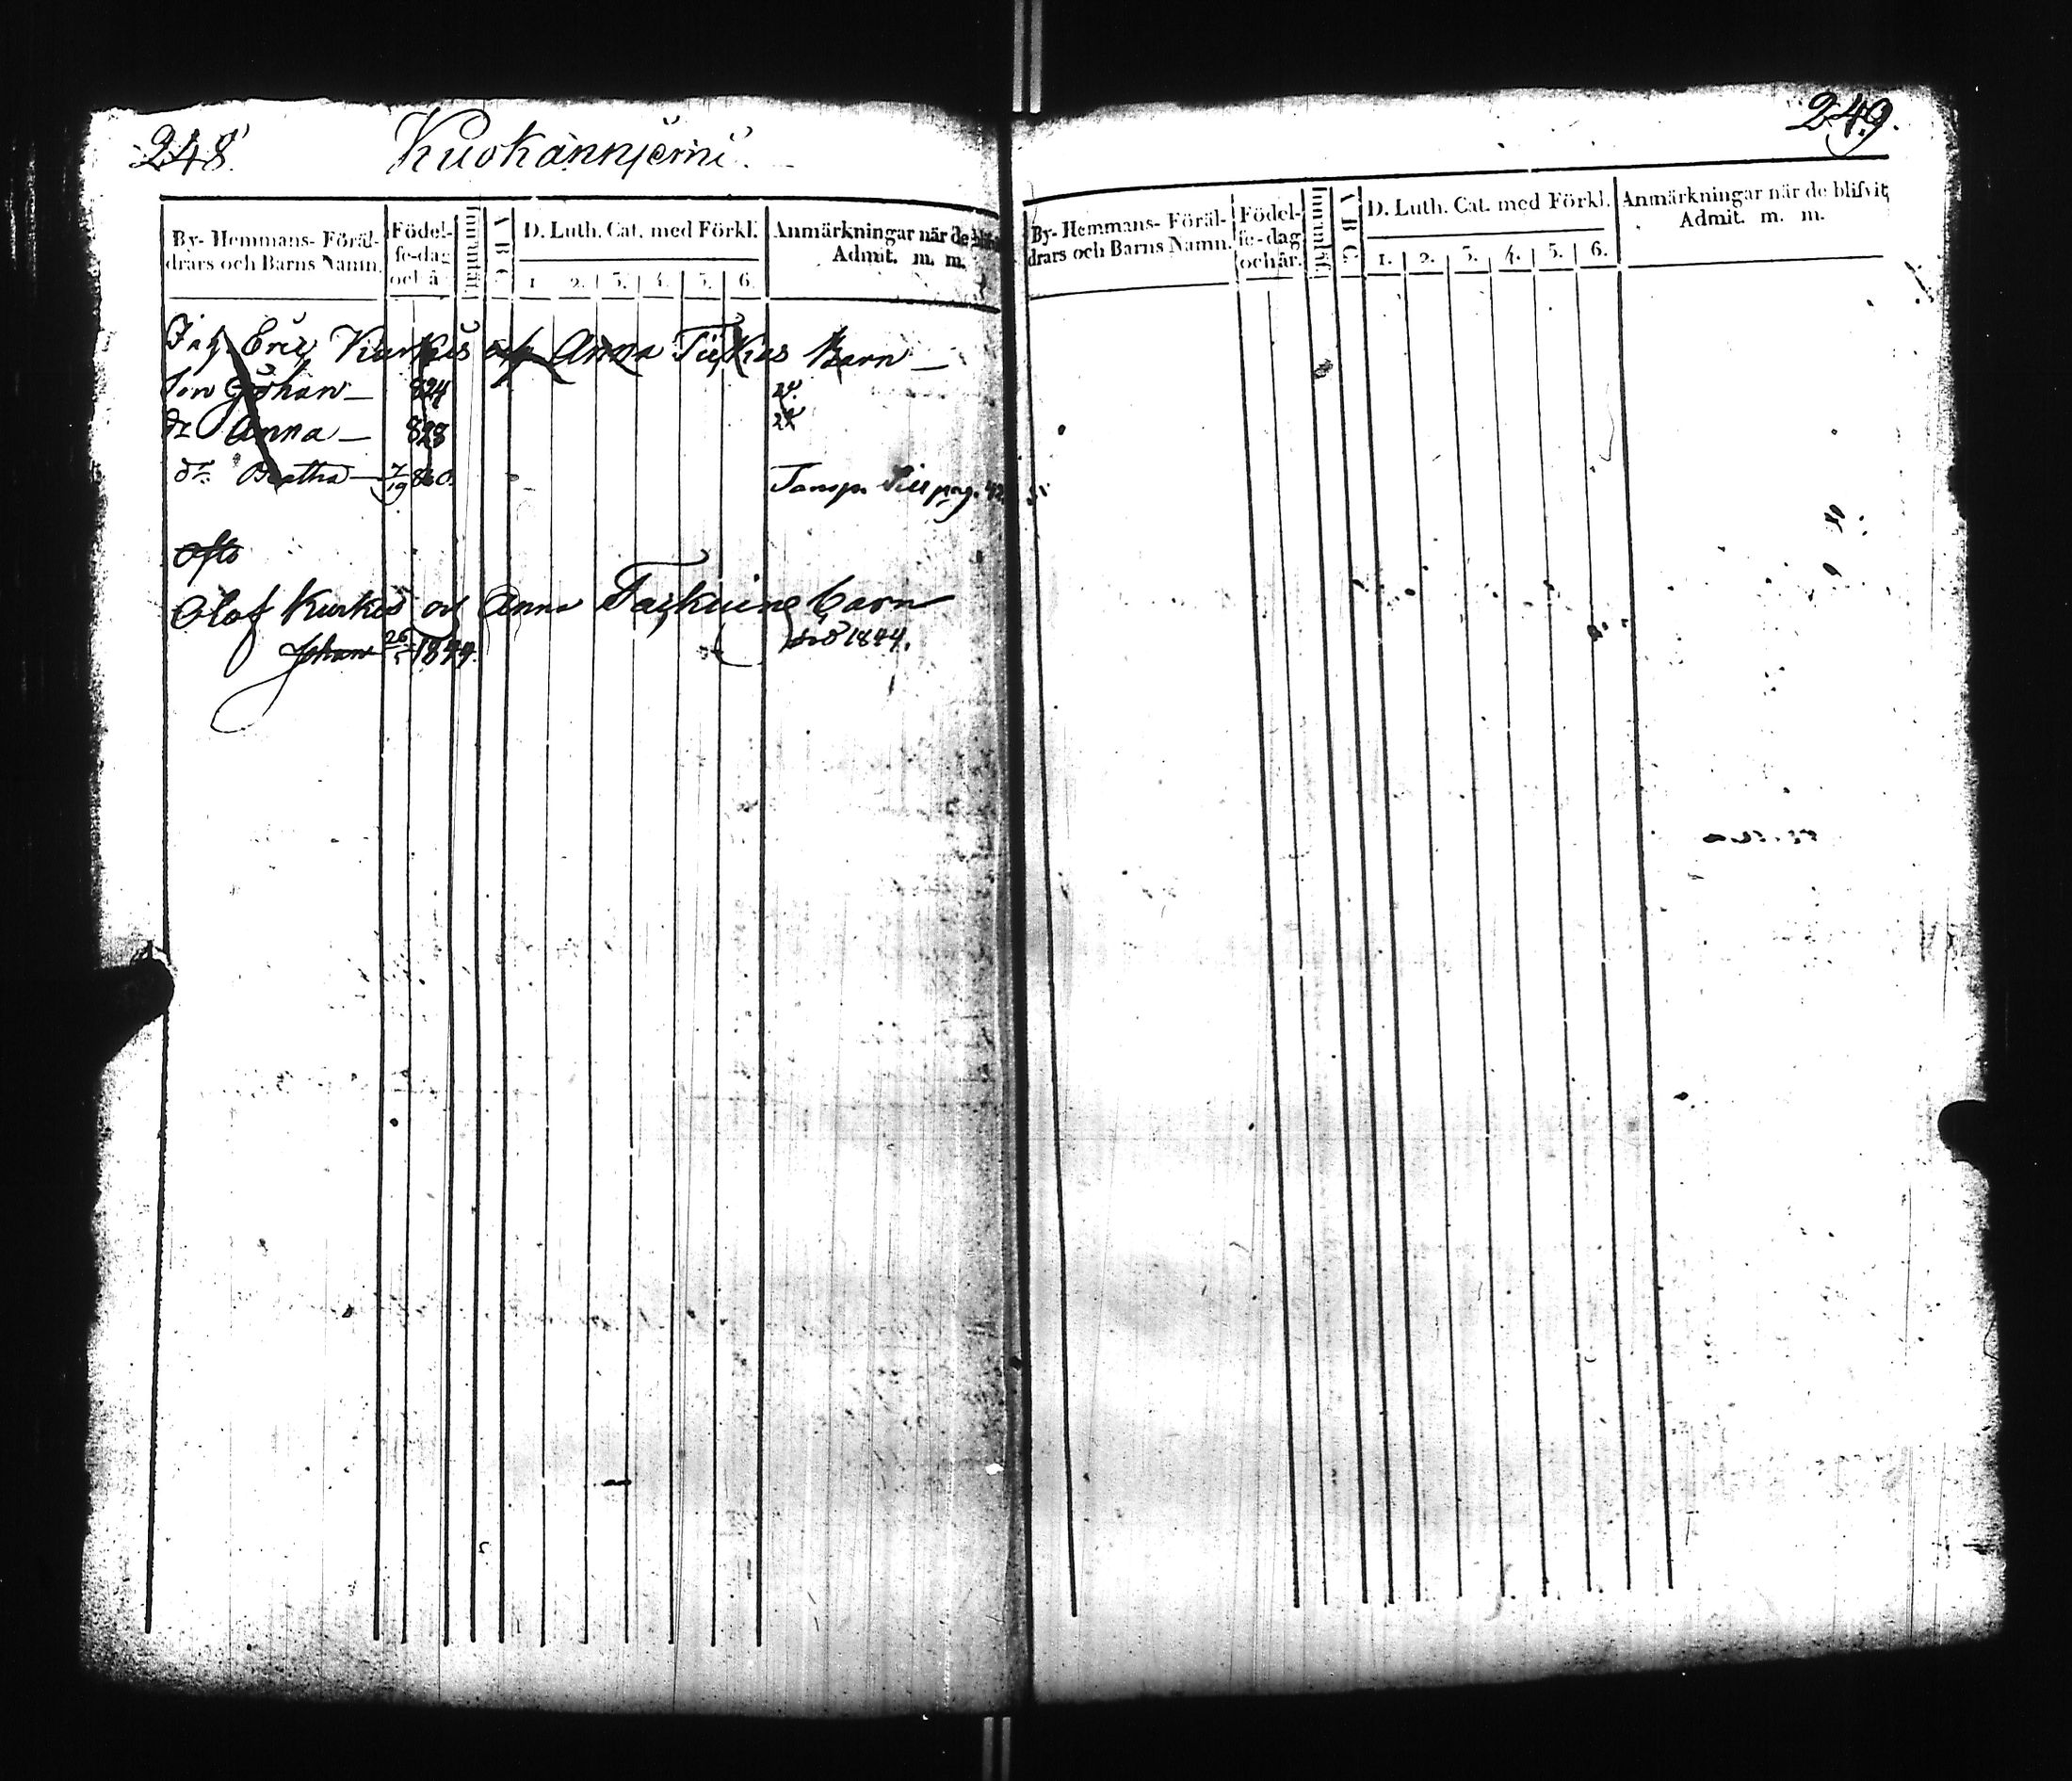 248.
Kuokannjemi.
By- Hemmans- Föräl-
drars och Barns Namn.
Födel-
se-dag
och å
A B C
D. Luth. Cat. med Förkl.
1 2. 3. 4. 5. 6.
Anmärkningar när de blifvit
Admit. m. m.
Eric Kurkis Anna Barn
Son Johan 824
dr Anna 828
dr Beatha 7/19
Transp. till pag. 42
Olof Kurkis och Anna Barn
Johan 26 1844. död 1844.
249.
By- Hemmans- Föräl-
drars och Barns Namn.
Födel-
se-dag
och år.
A B C
D. Luth. Cat. med Förkl.
1. 2. 3. 4. 5. 6.
Anmärkningar när de blifvit
Admit. m. m.